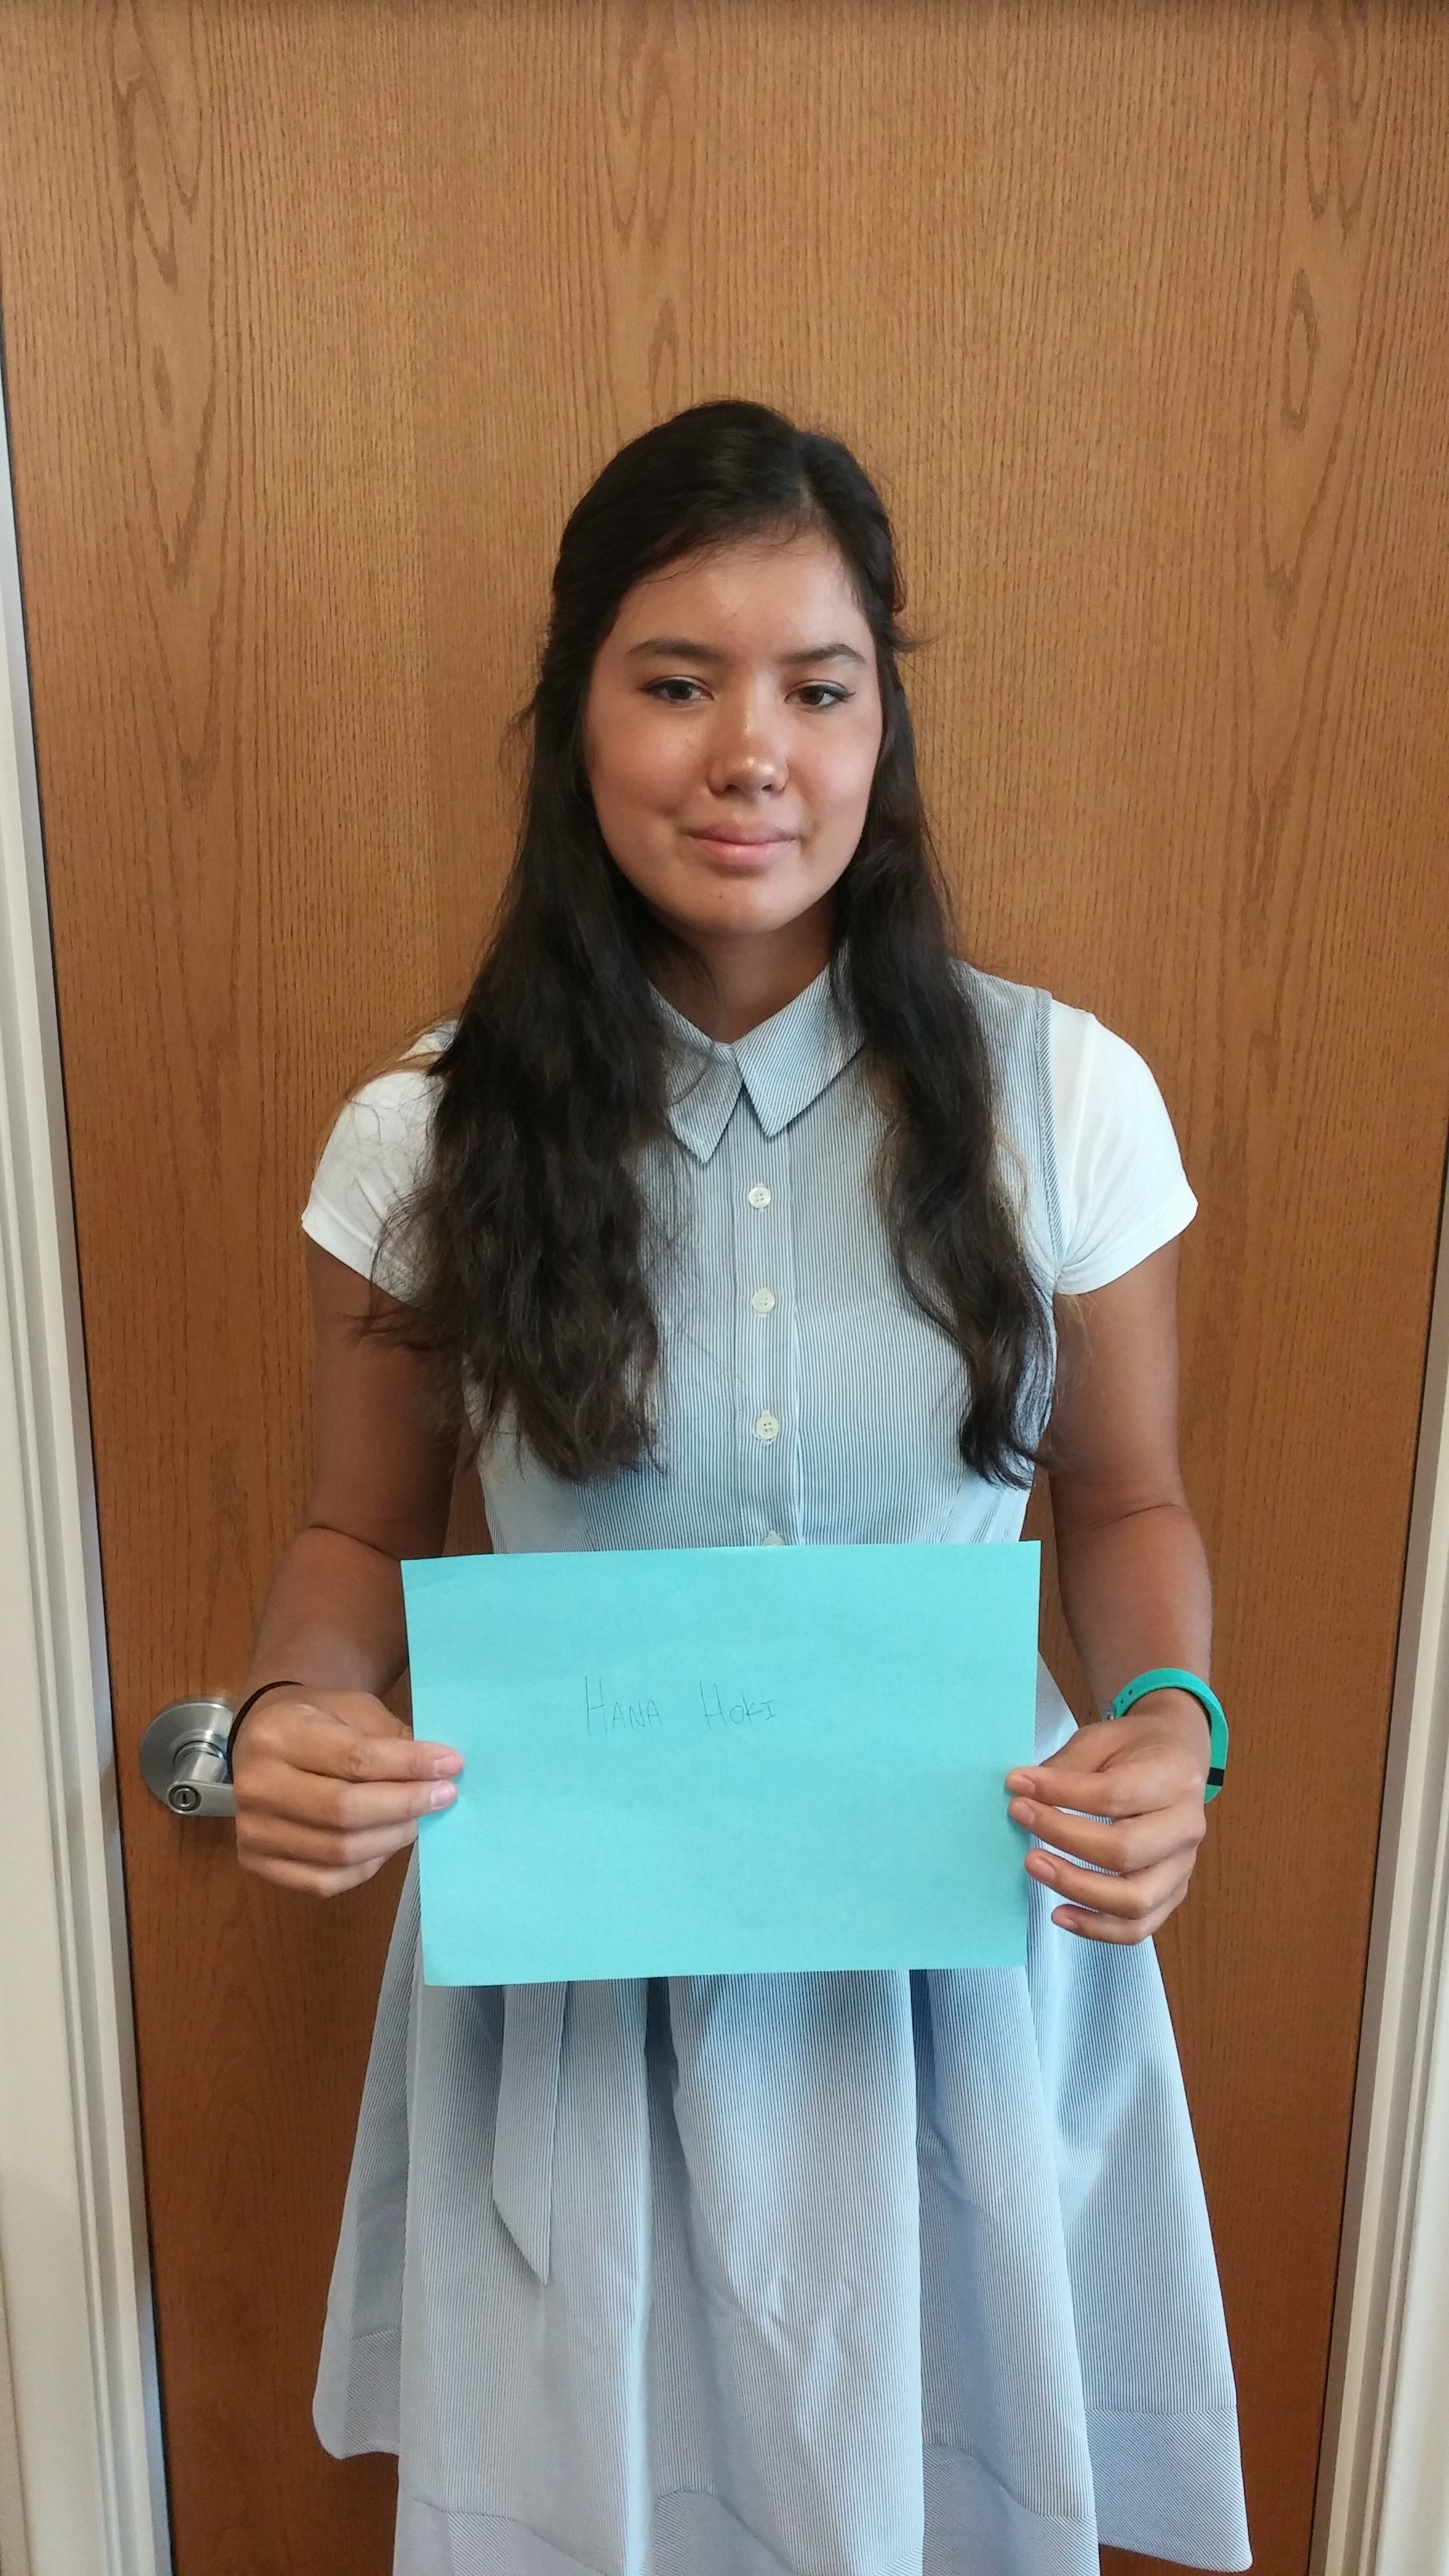 HANA HOKI